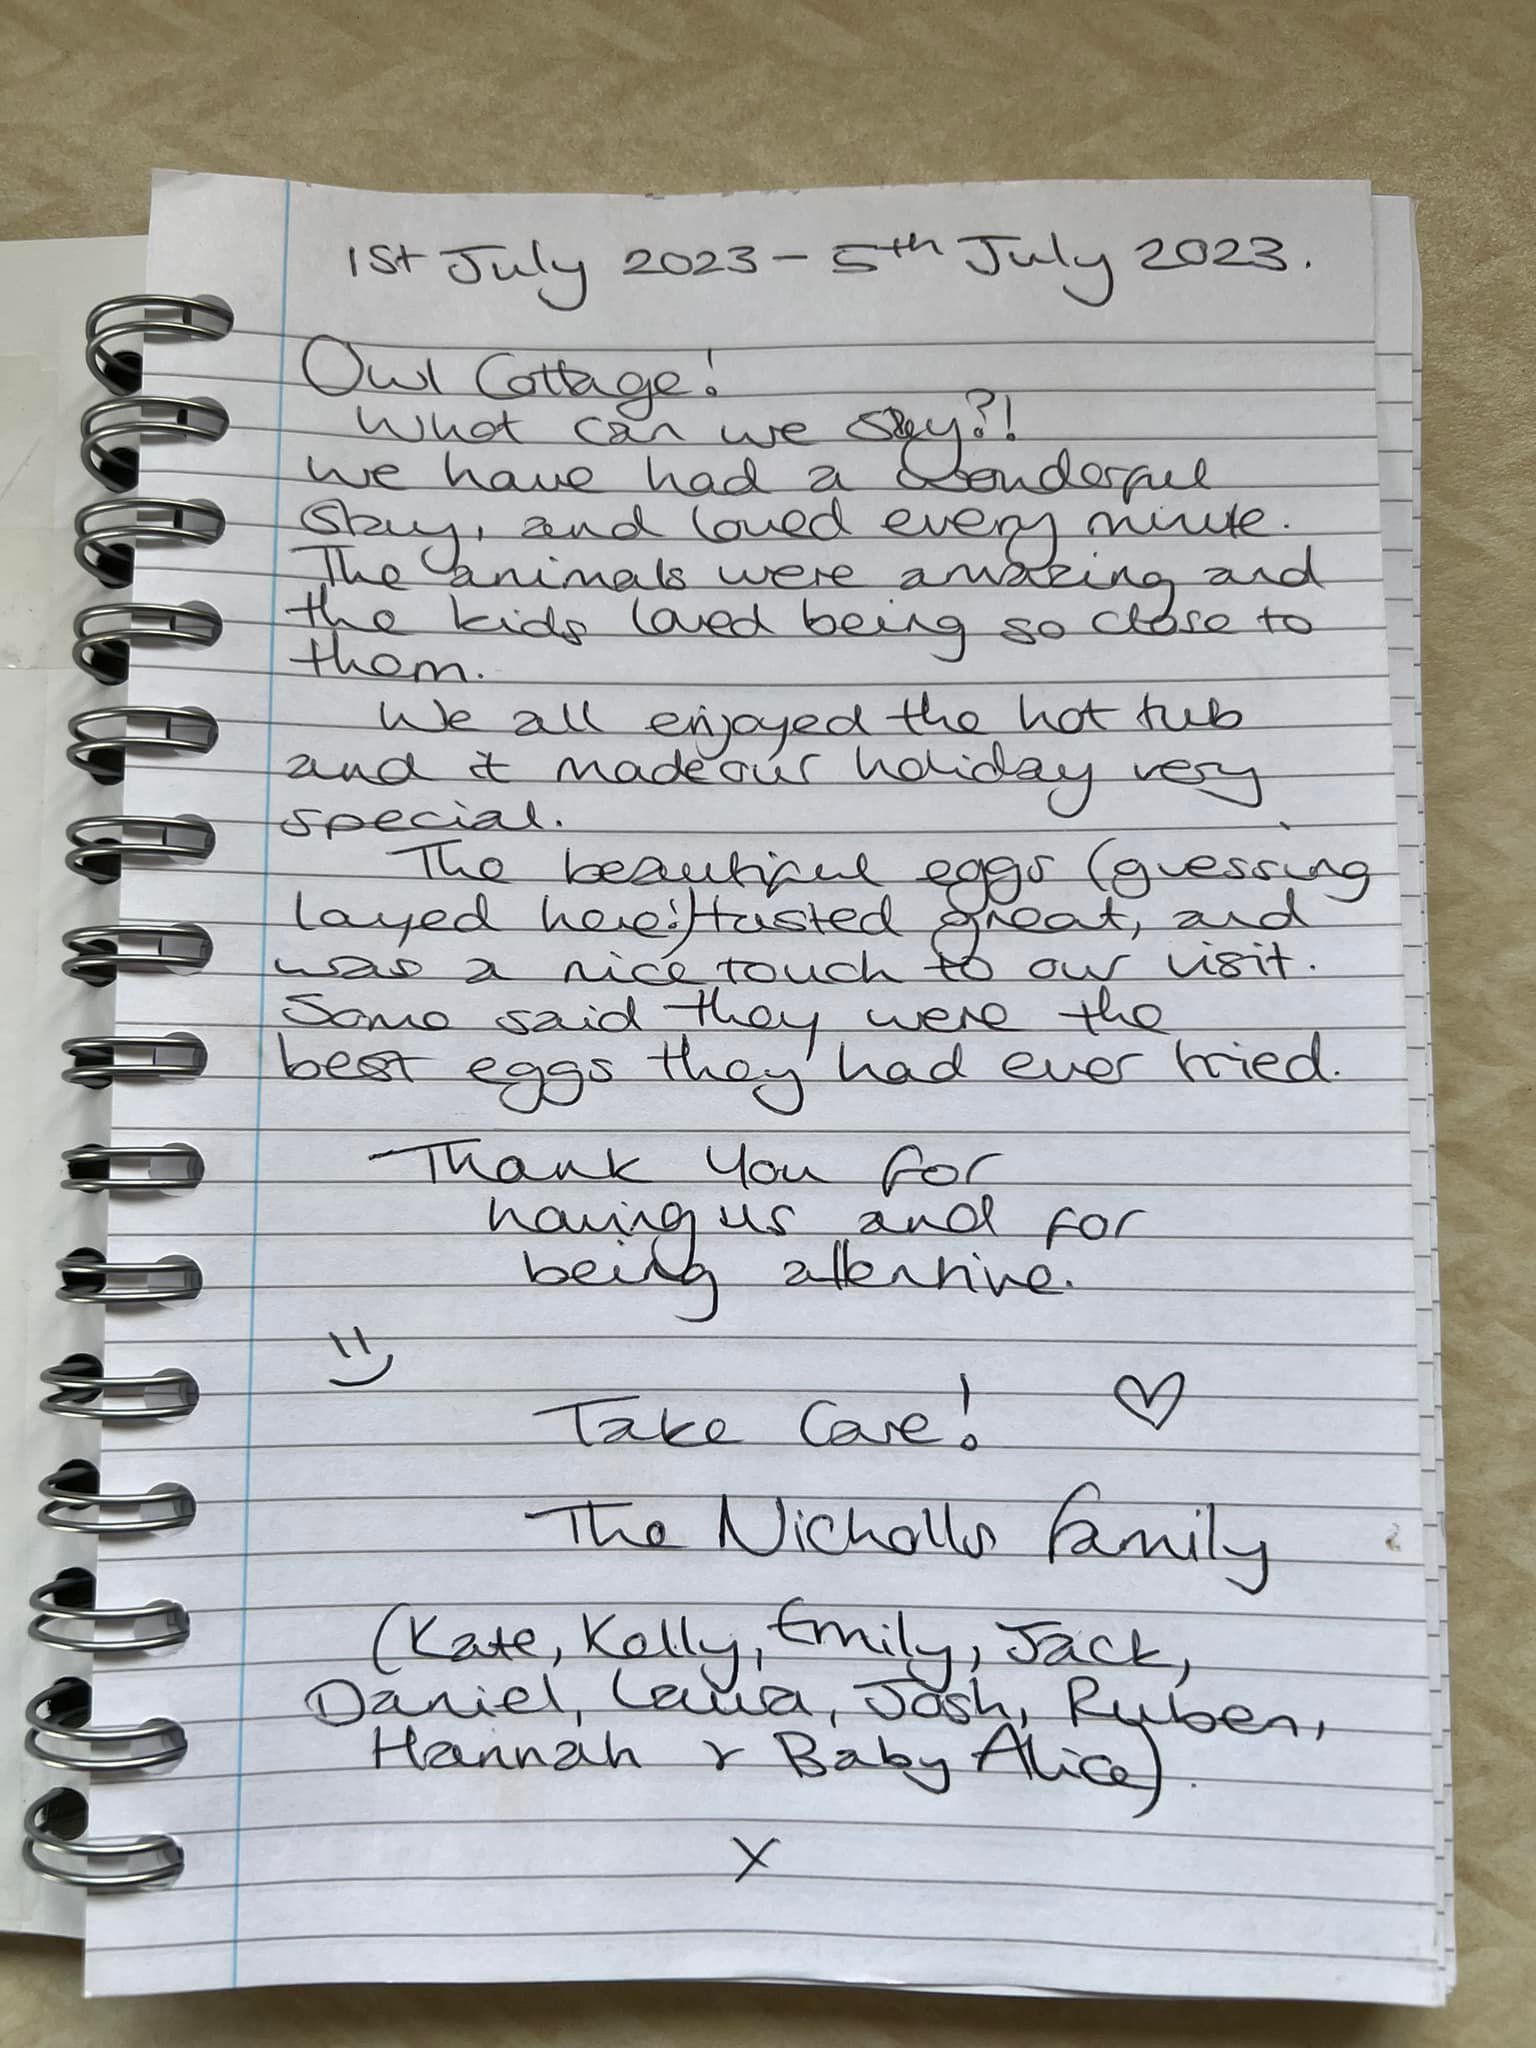 1st July 2023 - 5th July 2023.
Owl Cottage!
What can we say?!
We have had a wonderful
stay, and loved every minute.
The animals were amazing and
the kids loved being so close to
them.
We all enjoyed the hot tub
and it made our holiday very
special.
The beautiful eggs (guessing
layed here!) tasted great, and
was a nice touch to our visit.
Some said they were the
best eggs they had ever tried.
Thank you for
having us and for
being attentive.
Take Care!
The Nicholls Family
(Kate, Kelly, Emily, Jack,
Daniel, Laura, Josh, Ruben,
Hannah & Baby Alice).
X